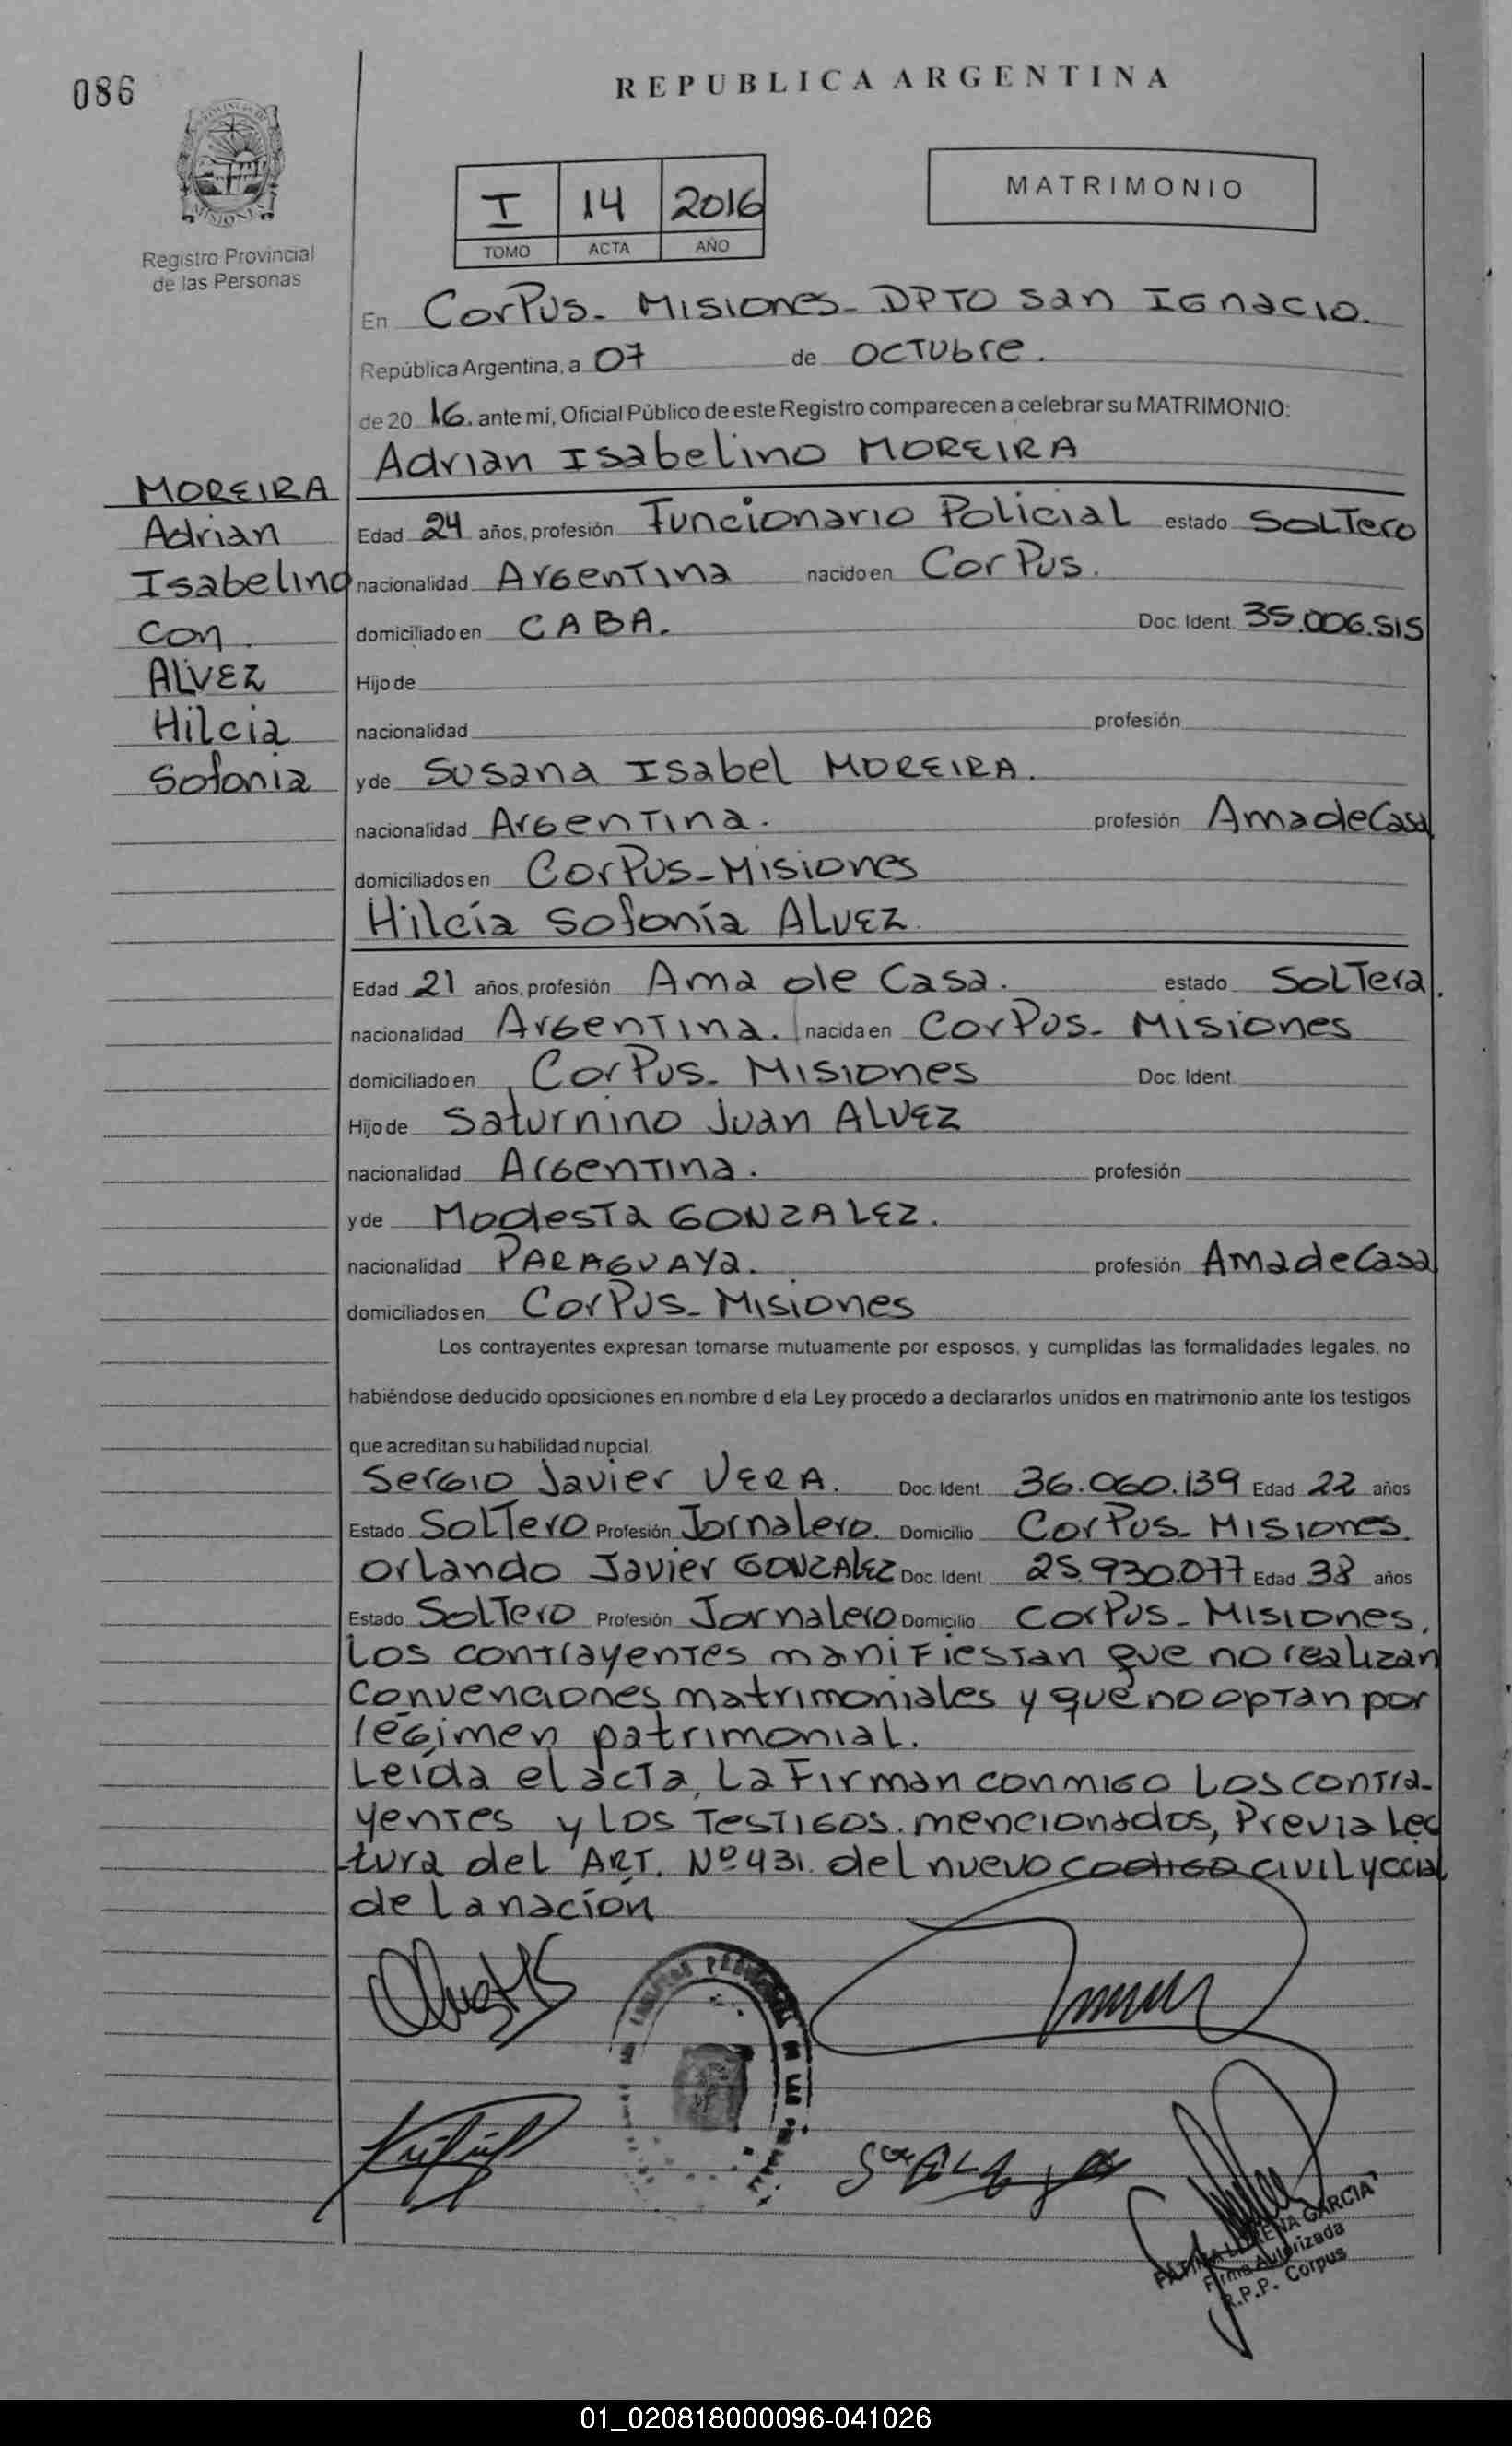 086
REPUBLICA ARGENTINA
MISIONES
Registro Provincial
de las Personas
I 14 2016
TOMO ACTA AÑO
MATRIMONIO
En Corpus - Misiones - DPTO San Ignacio.
República Argentina, a 07 de Octubre.
de 20 16. ante mi, Oficial Público de este Registro comparecen a celebrar su MATRIMONIO:
Adrian Isabelino MOREIRA
MOREIRA
Adrian
Isabelino
con
ALVEZ
Hilcia
Sofonia
Edad 24 años, profesión Funcionario Policial estado Soltero
nacionalidad Argentina nacido en Corpus.
domiciliado en CABA. Doc. Ident. 35.006.515
Hijo de
nacionalidad profesión
y de Susana Isabel MOREIRA.
nacionalidad Argentina. profesión Ama de Casa
domiciliados en Corpus - Misiones
Hilcía Sofonía ALVEZ
Edad 21 años, profesión Ama de Casa. estado Soltera.
nacionalidad Argentina. nacida en Corpus - Misiones
domiciliado en Corpus - Misiones Doc. Ident.
Hijo de Saturnino Juan ALVEZ
nacionalidad Argentina. profesión
y de Modesta GONZALEZ.
nacionalidad PARAGUAYA. profesión Ama de Casa
domiciliados en Corpus - Misiones
Los contrayentes expresan tomarse mutuamente por esposos, y cumplidas las formalidades legales, no
habiéndose deducido oposiciones en nombre d ela Ley procedo a declararlos unidos en matrimonio ante los testigos
que acreditan su habilidad nupcial.
Sergio Javier VERA. Doc. Ident. 36.060.139 Edad 22 años
Estado Soltero Profesión Jornalero. Domicilio Corpus - Misiones.
Orlando Javier GONZALEZ Doc. Ident. 25.930.077 Edad 38 años
Estado Soltero Profesión Jornalero Domicilio Corpus - Misiones.
Los contrayentes manifiestan que no realizan
convenciones matrimoniales y que no optan por
régimen patrimonial.
Leída el acta, la firman conmigo los contra-
yentes y los testigos mencionados, previa lec
tura del ART. Nº 431. del nuevo codigo civil y ccial
de la nación
FATIMA LORENA GARCIA
Firma Autorizada
R.P.P. Corpus
01_020818000096-041026